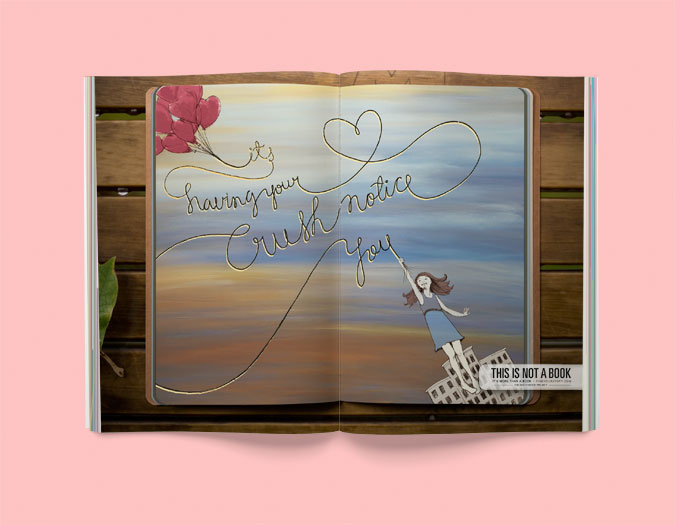 it's
having your
crush notice
you
THIS IS NOT A BOOK
IT'S MORE THAN A BOOK